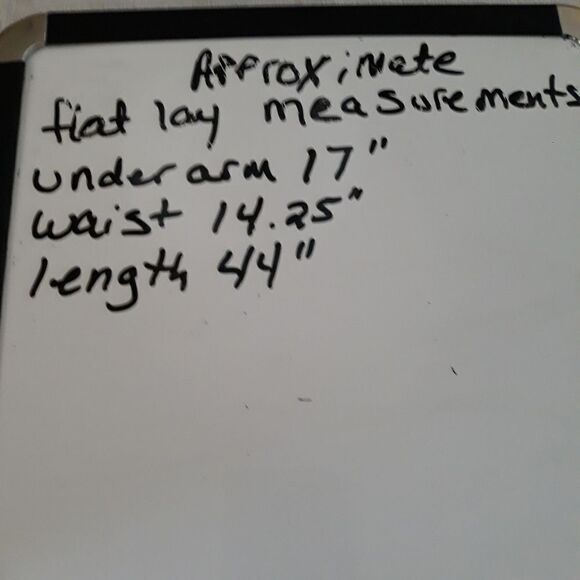 Approximate
flat lay measurements
under arm 17"
waist 14.25"
length 44"